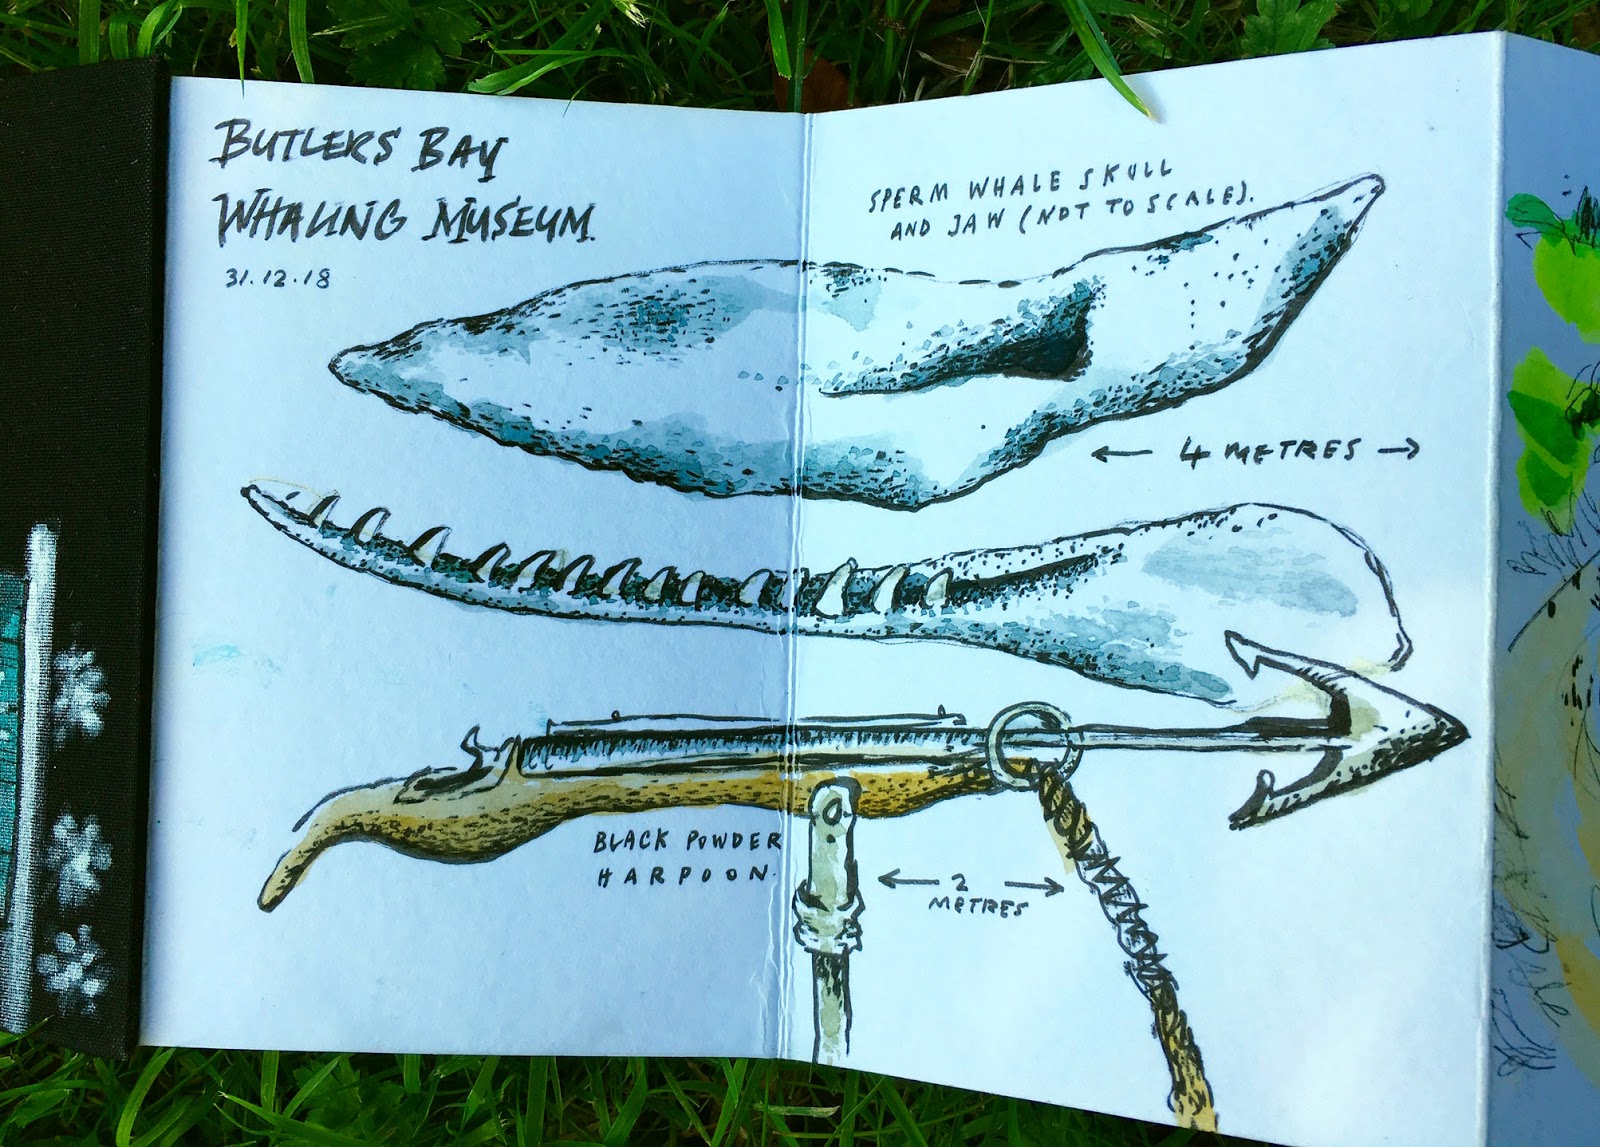 BUTLERS BAY
WHALING MUSEUM.
31.12.18
SPERM WHALE SKULL
AND JAW (NOT TO SCALE).
← 4 METRES →
BLACK POWDER
HARPOON.
← 2 →
METRES